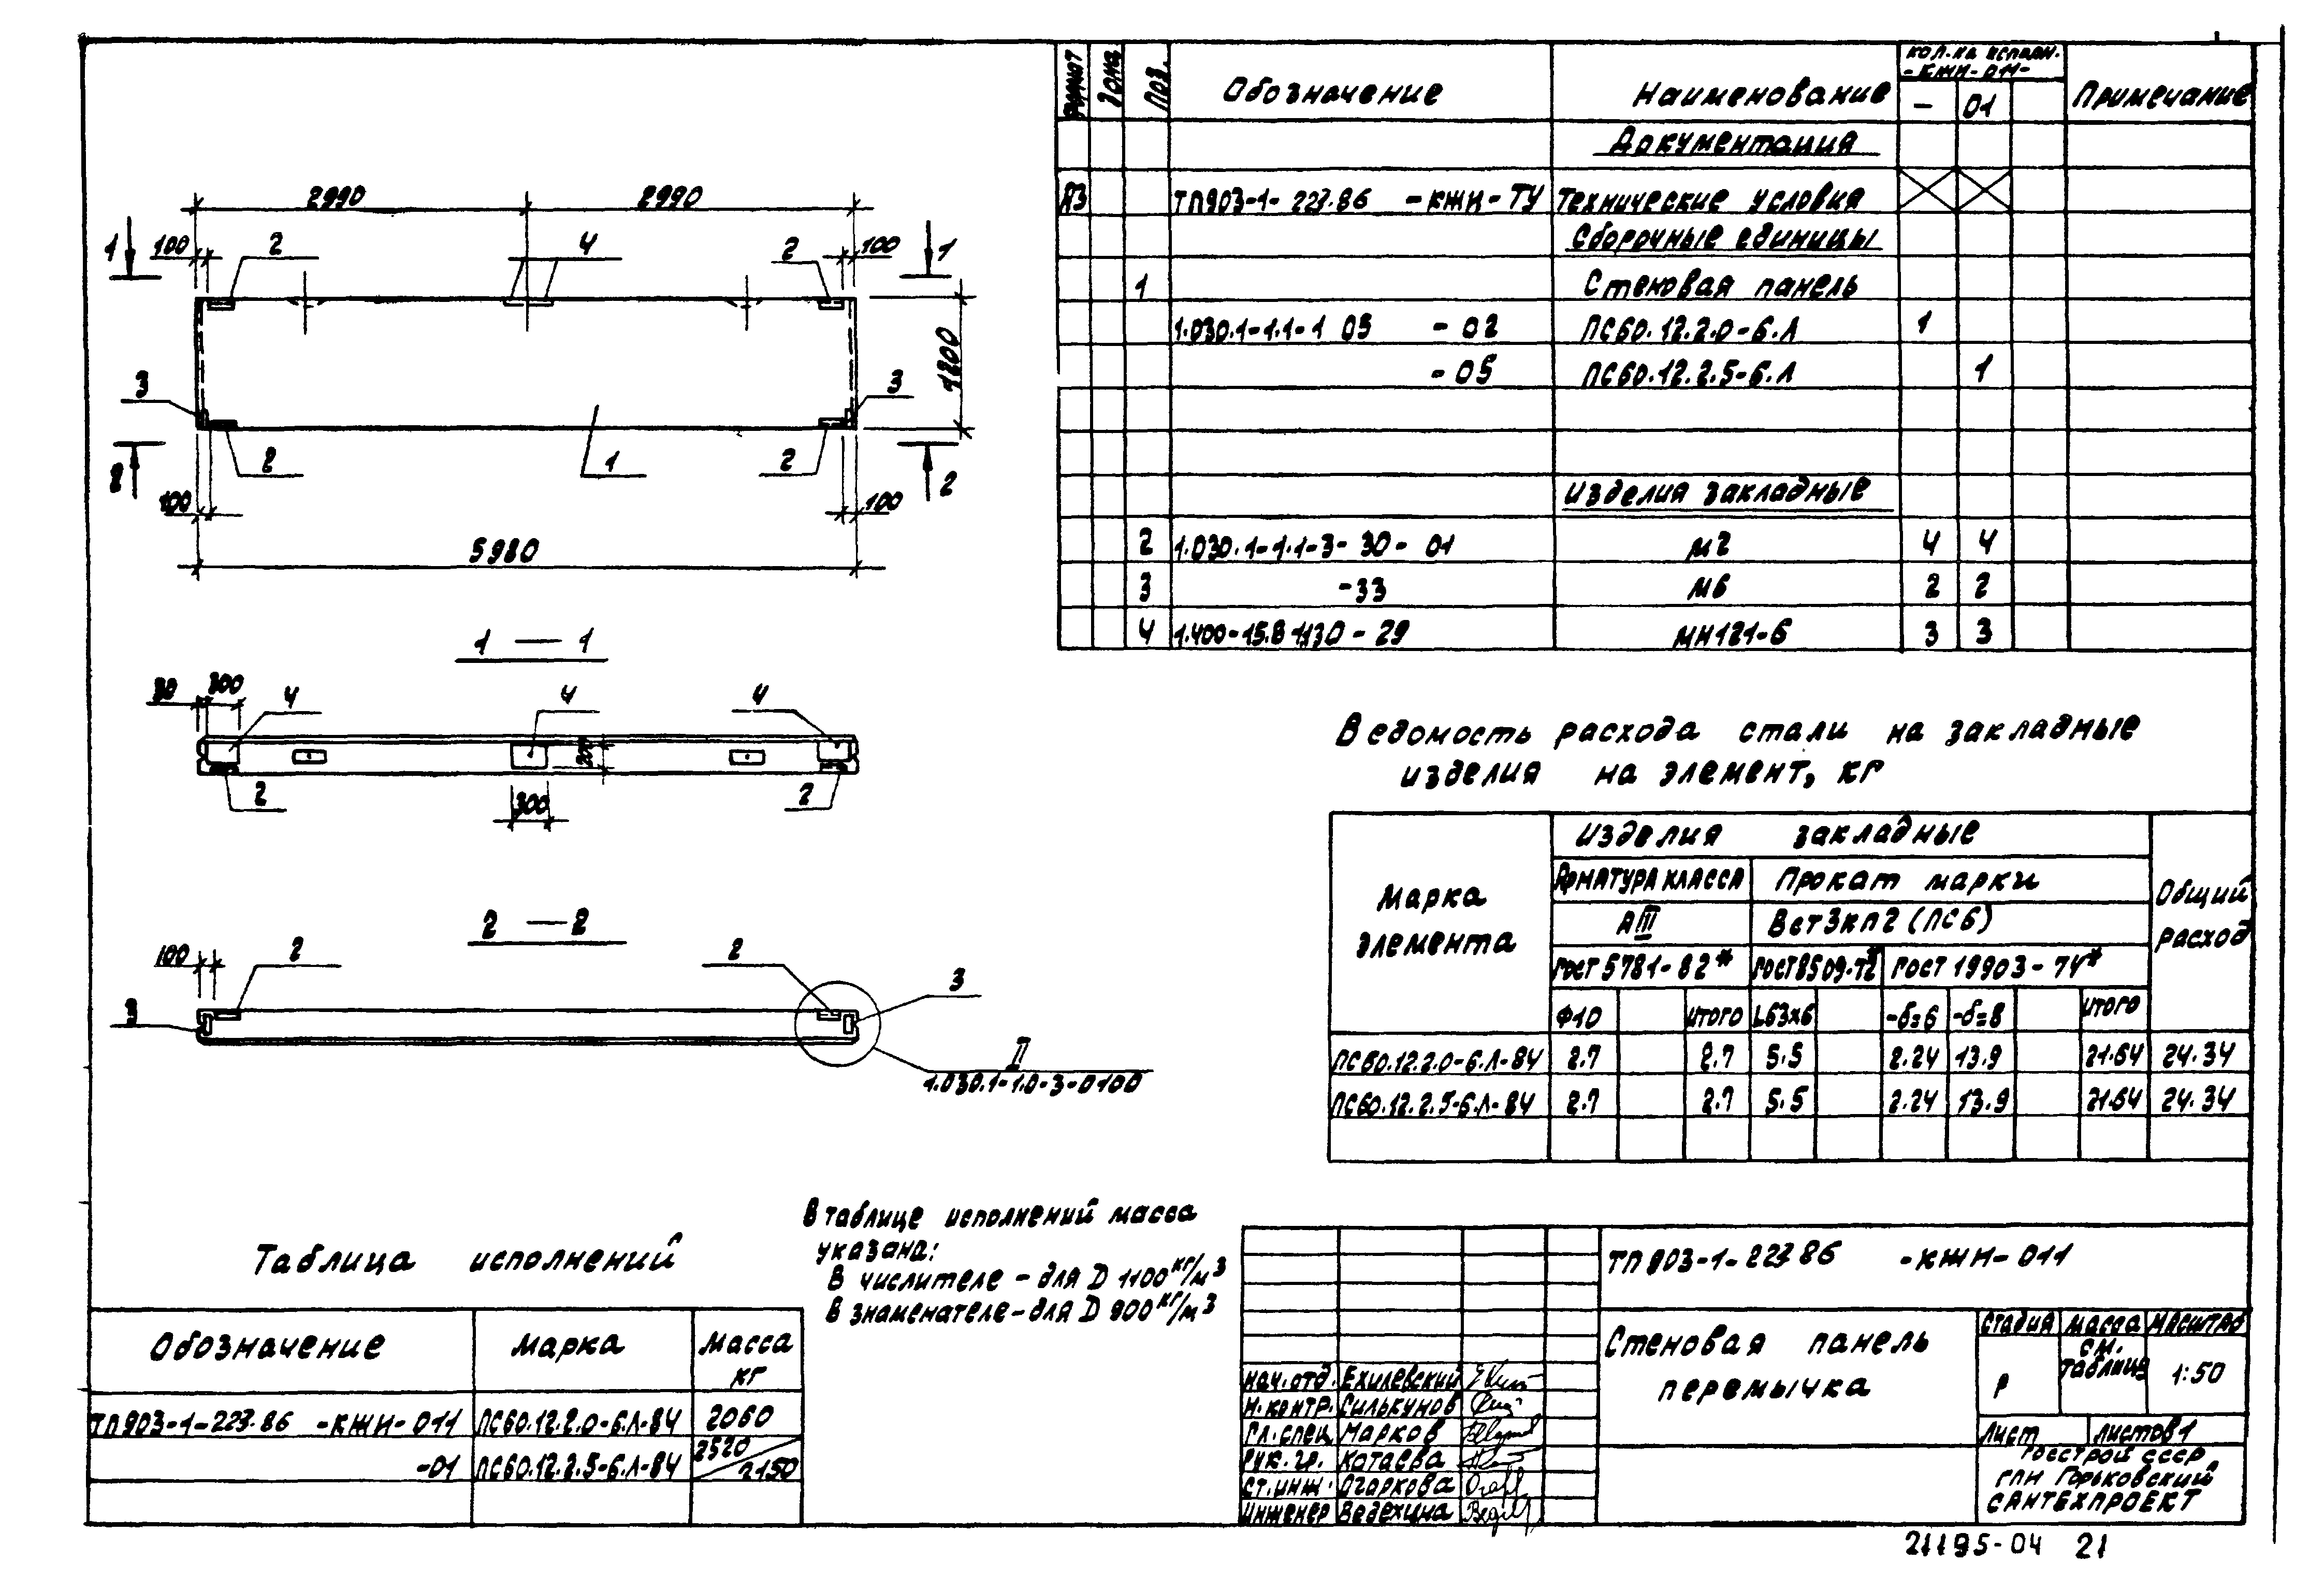 2990 2990
1 100 2 4 2 100 1
3 3 1200
2 2 1 2 2
100 100
5980
1 — 1
30 300 4 4 4
200
2 300 2
2 — 2
100 2 2 3
3
II
1.030.1-1.0-3-0100
Формат Зона Поз. Обозначение Наименование Кол. на исполн. -КЖИ-011- Примечание
— 01
Документация
А3 ТП903-1-227.86 -КЖИ-ТУ Технические условия
Сборочные единицы
1 Стеновая панель
1.030.1-1.1-1 03 -02 ПС60.12.2.0-6.Л 1
-05 ПС60.12.2.5-6.Л 1
Изделия закладные
2 1.030.1-1.1-3-30-01 М2 4 4
3 -33 М6 2 2
4 1.400-15.В1 130-29 МН121-6 3 3
Ведомость расхода стали на закладные
изделия на элемент, кг
Марка элемента Изделия закладные Общий расход
Арматура класса Прокат марки
АIII ВСт3кп2 (ПС6)
ГОСТ 5781-82* ГОСТ 8509-72* ГОСТ 19903-74*
Ф10 Итого L63х6 -δ=6 -δ=8 Итого
ПС60.12.2.0-6.Л-84 2.7 2.7 5.5 2.24 13.9 21.64 24.34
ПС60.12.2.5-6.Л-84 2.7 2.7 5.5 2.24 13.9 21.64 24.34
В таблице исполнений масса
указана:
В числителе - для D 1100 кг/м3
В знаменателе - для D 900 кг/м3
Таблица исполнений
Обозначение Марка Масса кг
ТП903-1-227.86 -КЖИ-011 ПС60.12.2.0-6.Л-84 2060
-01 ПС60.12.2.5-6.Л-84 2520/2150
ТП 903-1-227.86 -КЖИ-011
Стеновая панель
перемычка
Стадия Масса Масштаб
Р см. таблица 1:50
Лист Листов 1
Госстрой СССР
ГПИ Горьковский
Сантехпроект
Нач.отд. Ехилевский
Н.контр. Силькунов
Гл.спец. Марков
Рук.гр. Котаева
Ст.инж. Огаркова
Инженер Ведехина
21195-04 21